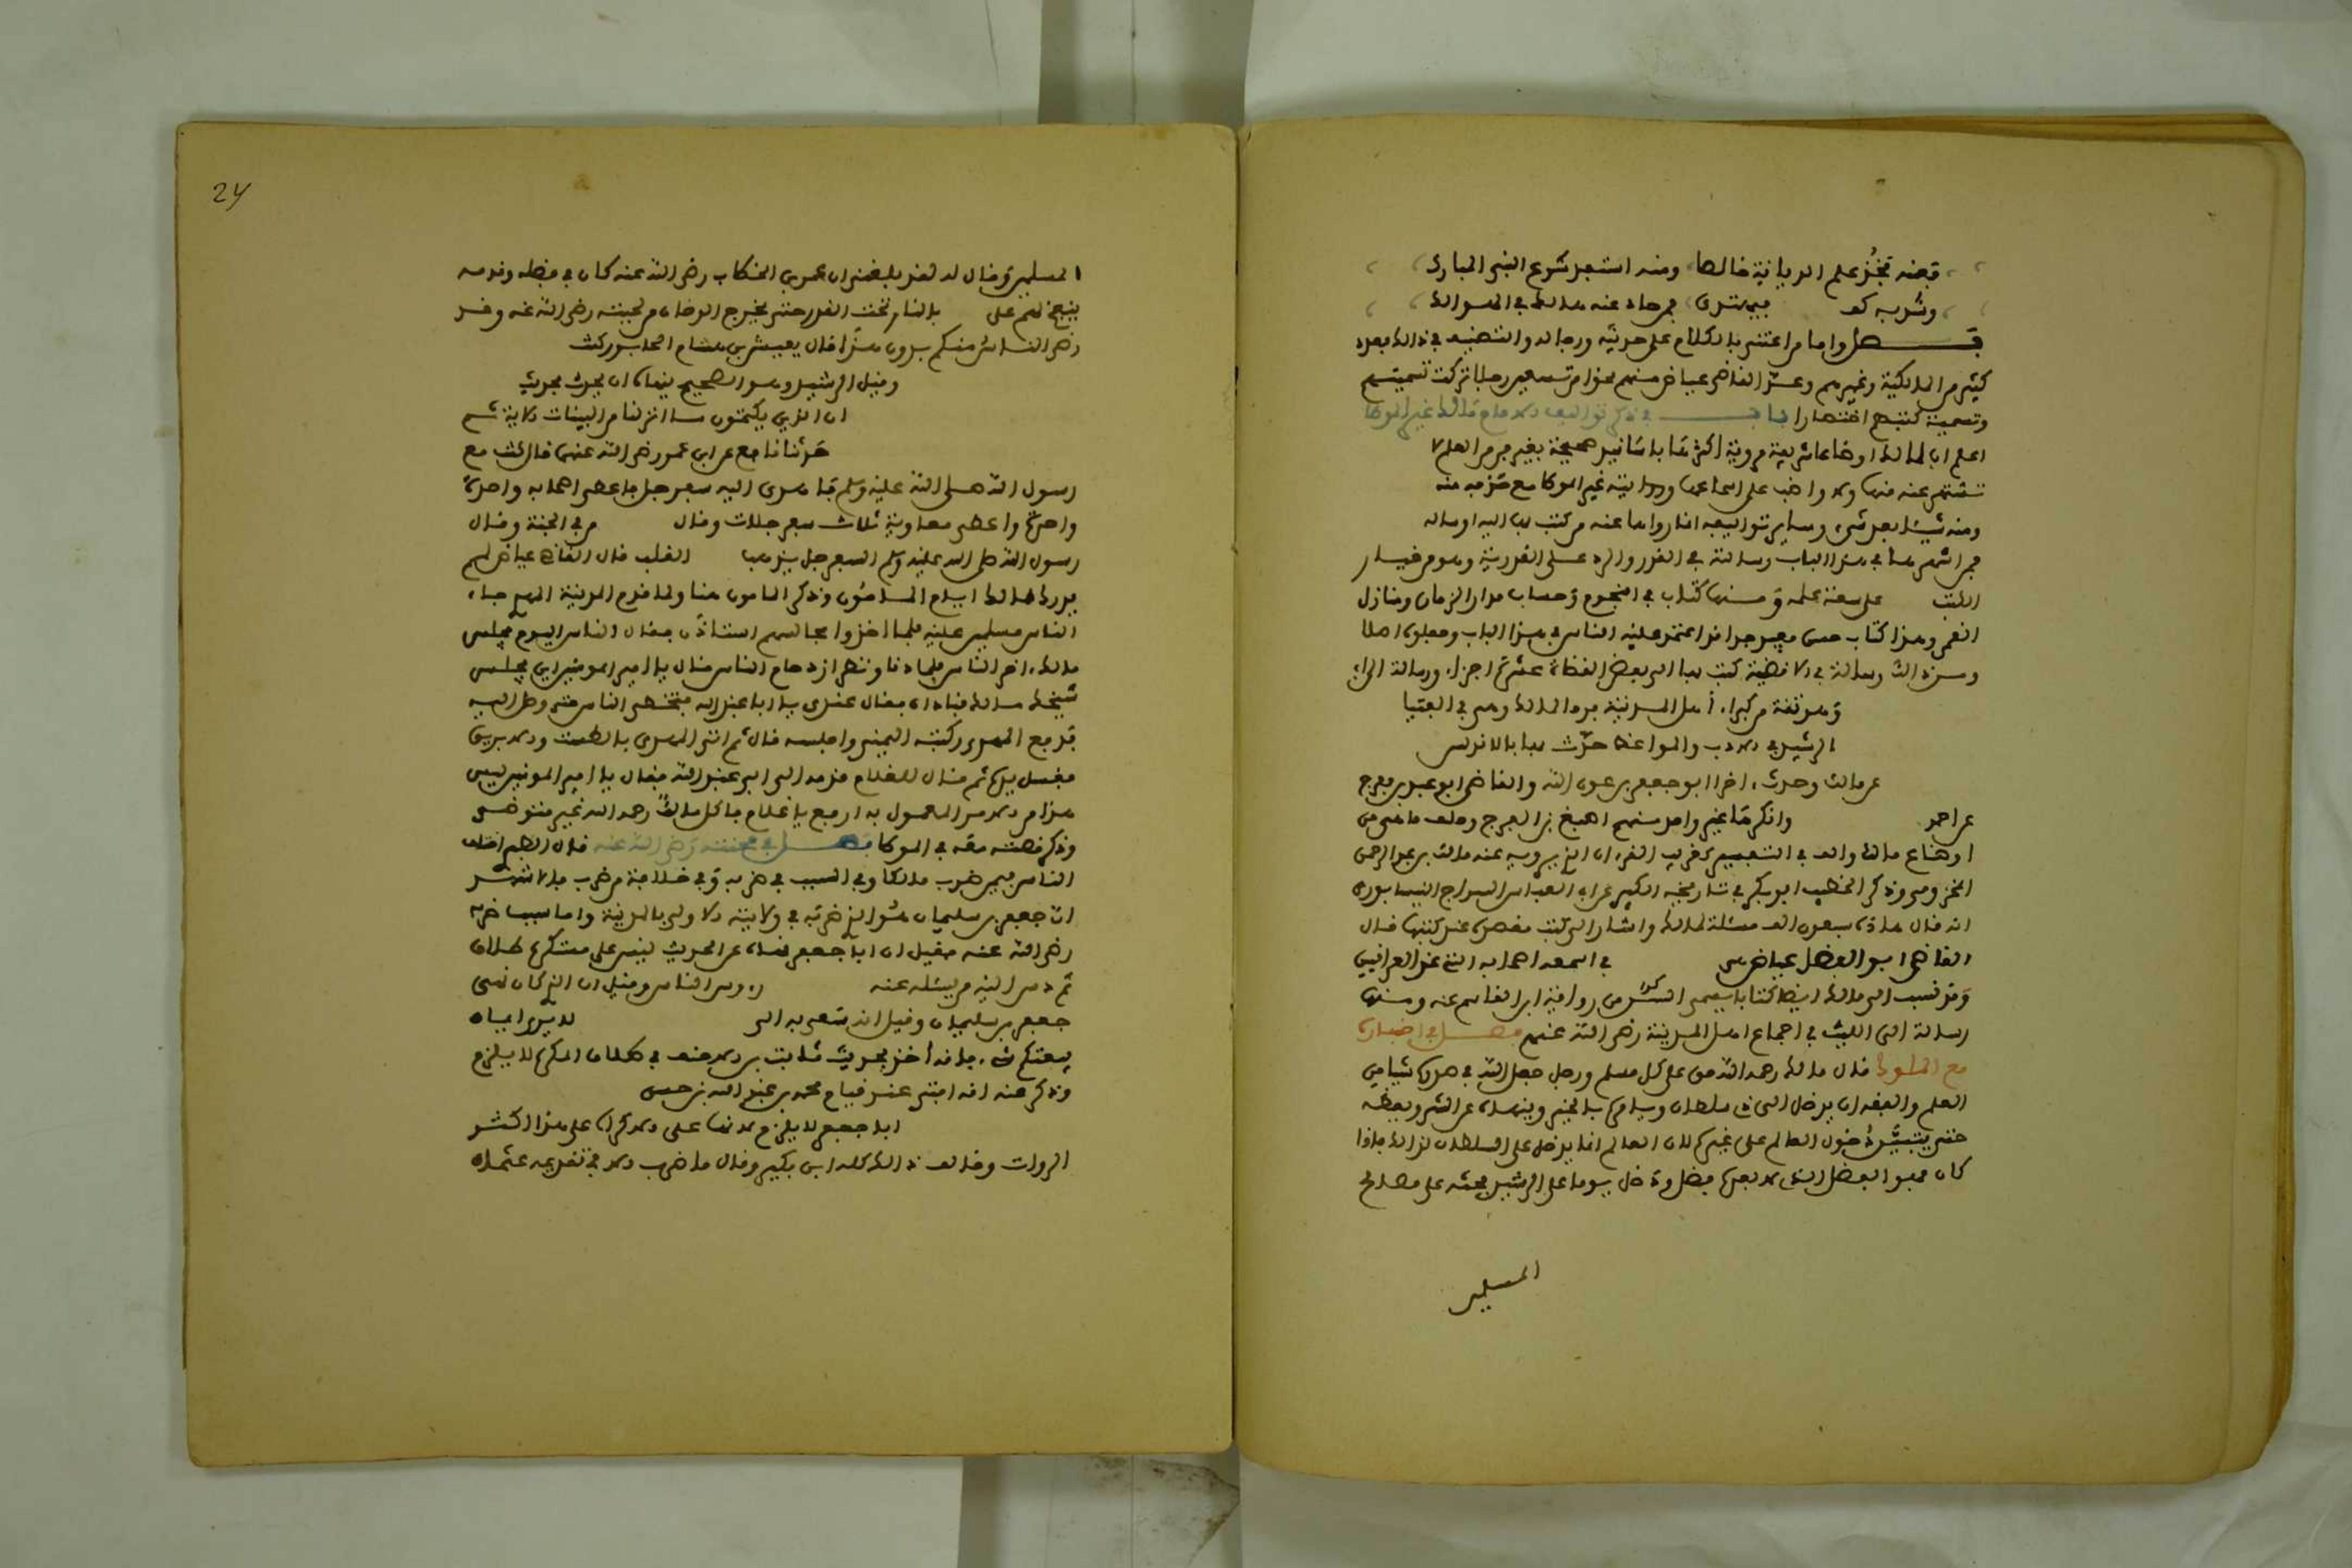 قبضه تجز علم الديانة خالصا ومنه استعد شرع النبي المبارك
وشربه كو فيهتدى بمرجاء عنه مالك في المسوالك
فصل واما من اعتنى بالكلام على حديثه ورجاله والتصنيف في ذالك بعدد
كثير من المالكية وغيرهم وعد القاضي عياض منهم نحوا من تسعين رجلا تركت تسميتهم
وتسمية كتبهم اختصارا باب في ذكر تواليف الامام مالك غير الموطا
اعلم ان لمالك اوضاعا شريفة مروية اكثرها باسانيد صحيحة بغير من العلم لا
تشتهر عنه منها ولا واظب على اسماعها وروايته غير الموطا مع حذفه منه
ومنه شيئا بعد شيء وساير تواليفه انما رواها عنه من كتب بها اليه او ساله
فمن اشهرها في هذا الباب رسالته في القدر والرد على القدرية وهو من خيار
الكتب على سعة علمه ومنها كتاب في النجوم وحساب مدار الزمان ومنازل
القمر وهذا كتاب حسن مفيد جدا قد اعتمد عليه الناس في هذا الباب وجعلوه اصلا
ومن ذالك رسالته في الاقضية كتب بها الى بعض القضاة عشرة اجزاء ورسالته الى
وهو ثقة من كبراء أهل المدينة مرو المالك وهي في الفتيا
الرشيد في الادب والمواعظ حدث بها بالاندلس
عن مالك وحدث اخرا ابو جعفر بن عون الله والقاضي ابو عبد بن مفرج
عن احمد وانكرها غير واحد منهم اصبغ بن الفرج وحلف ما هي من
اوضاع مالك والف في التفسير لغريب القرءان الذي يرويه عنه خالد بن عبد الرحمن
المخزومي وذكر الخطيب ابو بكر في تاريخه الكبير عن ابي العباس السراج النيسابوري
انه قال هاذه سبعون الف مسئلة لمالك واشار الى كتب منضدة عنده كتبها قال
القاضي ابو الفضل عياض هي في اسمعة اصحابه التي عند العراقيين
وقد نسب الى مالك ايضا كتابا يسمى السر من رواية ابن القاسم عنه ومنها
رسالة الى الليث في اجماع اهل المدينة رضي الله عنهم فصل في اخباره
مع الملوك قال مالك رحمه الله حق على كل مسلم ورجل جعل الله في صدره شيئا من
العلم والفقه ان يدخل الى ذي سلطان ويامره بالخير وينهاه عن الشر ويعظه
حتى يتبين دخول العالم على غيره لان العالم انما يدخل على السلطان لذالك فاذا
كان فهو الفضل الذي لا بعده فضل ودخل يوما على الرشيد فحثه على مصالح
المسلمين
24
المسلمين وقال له لقد بلغني ان عمر بن الخطاب رضي الله عنه كان في فضله وقدمه
ينفخ لهم على بالنار تحت القدر حتى يخرج الدخان من لحيته رضي الله عنه وقد
رضى الناس منكم بدون هذا قال يعيش بن هشام الخابوركت
وقيل الرشيد وهو الصحيح ينهاه ان يحدث بحديث
ان الذين يكتمون ما انزلنا من البينات الاية ثم
حدثنا نافع عن ابن عمر رضي الله عنهما قال كنت مع
رسول الله صلى الله عليه وسلم فاهدى اليه سفرجل فاعطى اصحابه واحدة
واحدة واعطى معاوية ثلاث سفرجلات وقال في الجنة وقال
رسول الله صلى الله عليه وسلم السفرجل يذهب القلب قال القاضي عياض لم
يدرك مالك ايام المامون وذكر المامون هنا ولما قدم المدينة المهدي جاءه
الناس مسلمين عليه فلما اخذوا مجالسهم استاذن فقال الناس اليوم يجلس
مالك اخر الناس فلما دنا ونظر ازدحام الناس قال يا امير المومنين اين يجلس
شيخك مالك فناداه فقال عندى يا ابا عبد الله فتخطى الناس حتى وصل اليه
فرفع المهدى ركبته اليمنى واجلسه قال ثم اتى المهدى بالطست والابريق
فغسل يده ثم قال للغلام قدمه الى ابي عبد الله فقال يا امير المومنين ليس
هذا من الامر المعمول به ارفع يا غلام فاكل مالك رحمه الله غير متوضئ
وذكر قصته معه في الموطا فصل في محنته رضي الله عنه قال الطبرى اختلف
الناس فيمن ضرب مالكا وفي السبب في ضربه وفي خلافة من ضرب فالاشهر
ان جعفر بن سليمان هو الذي ضربه في ولايته الاولى بالمدينة واما سبب ضربه
رضي الله عنه فقيل ان ابا جعفر نهاه عن الحديث ليس على مستكره طلاق
ثم دس اليه من يسئله عنه رءوس الناس وقيل ان الذي كان نهى
جعفر بن سليمان وقيل انه سعى به الى لا يرى ايمان
بيعتكم شيء فانه أخذ بحديث ثابت بن الاحنف في طلاق المكره لا يلزم
وذكر عنه انه افتى عند قيام محمد بن عبد الله بن حسن
ابا جعفر لا يلزم لانها على الاكراه على هذا اكثر
الروات وخالف ذالك كله ابن بكير وقال ما ضرب الا في تقديمه عثمان